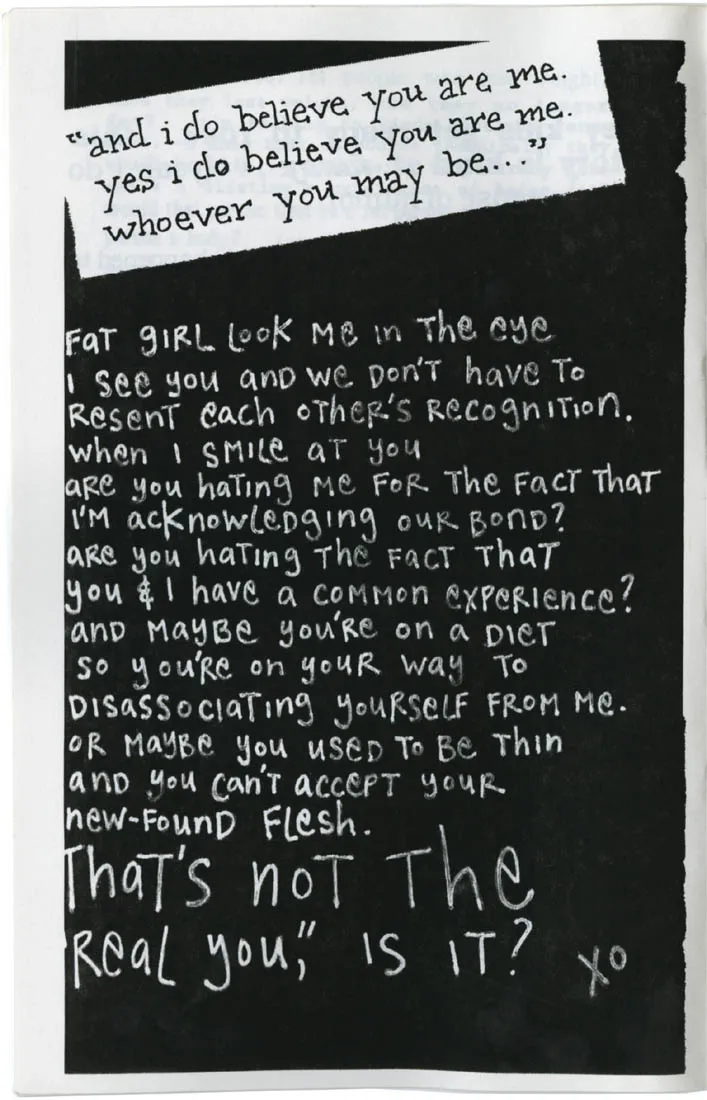 “and i do believe you are me.
yes i do believe you are me.
whoever you may be...”
FaT gIRL Look Me in The eye
I See you anD we Don'T have To
ResenT each oTheR's RecognITIon.
when I SMILe aT you
aRe you haTing Me FoR The FacT ThaT
I'M acknowLeDging ouR BonD?
aRe you haTIng The FacT ThaT
you & I have a coMMon exPeRIence?
anD MayBe you'Re on a DIeT
so you'Re on youR way To
DISassocIaTIng youRseLF FRoM Me.
oR MayBe you useD To Be ThIn
anD you can'T accePT youR
new-FounD FLesh.
ThaT'S noT The
"ReaL you," IS IT? xo